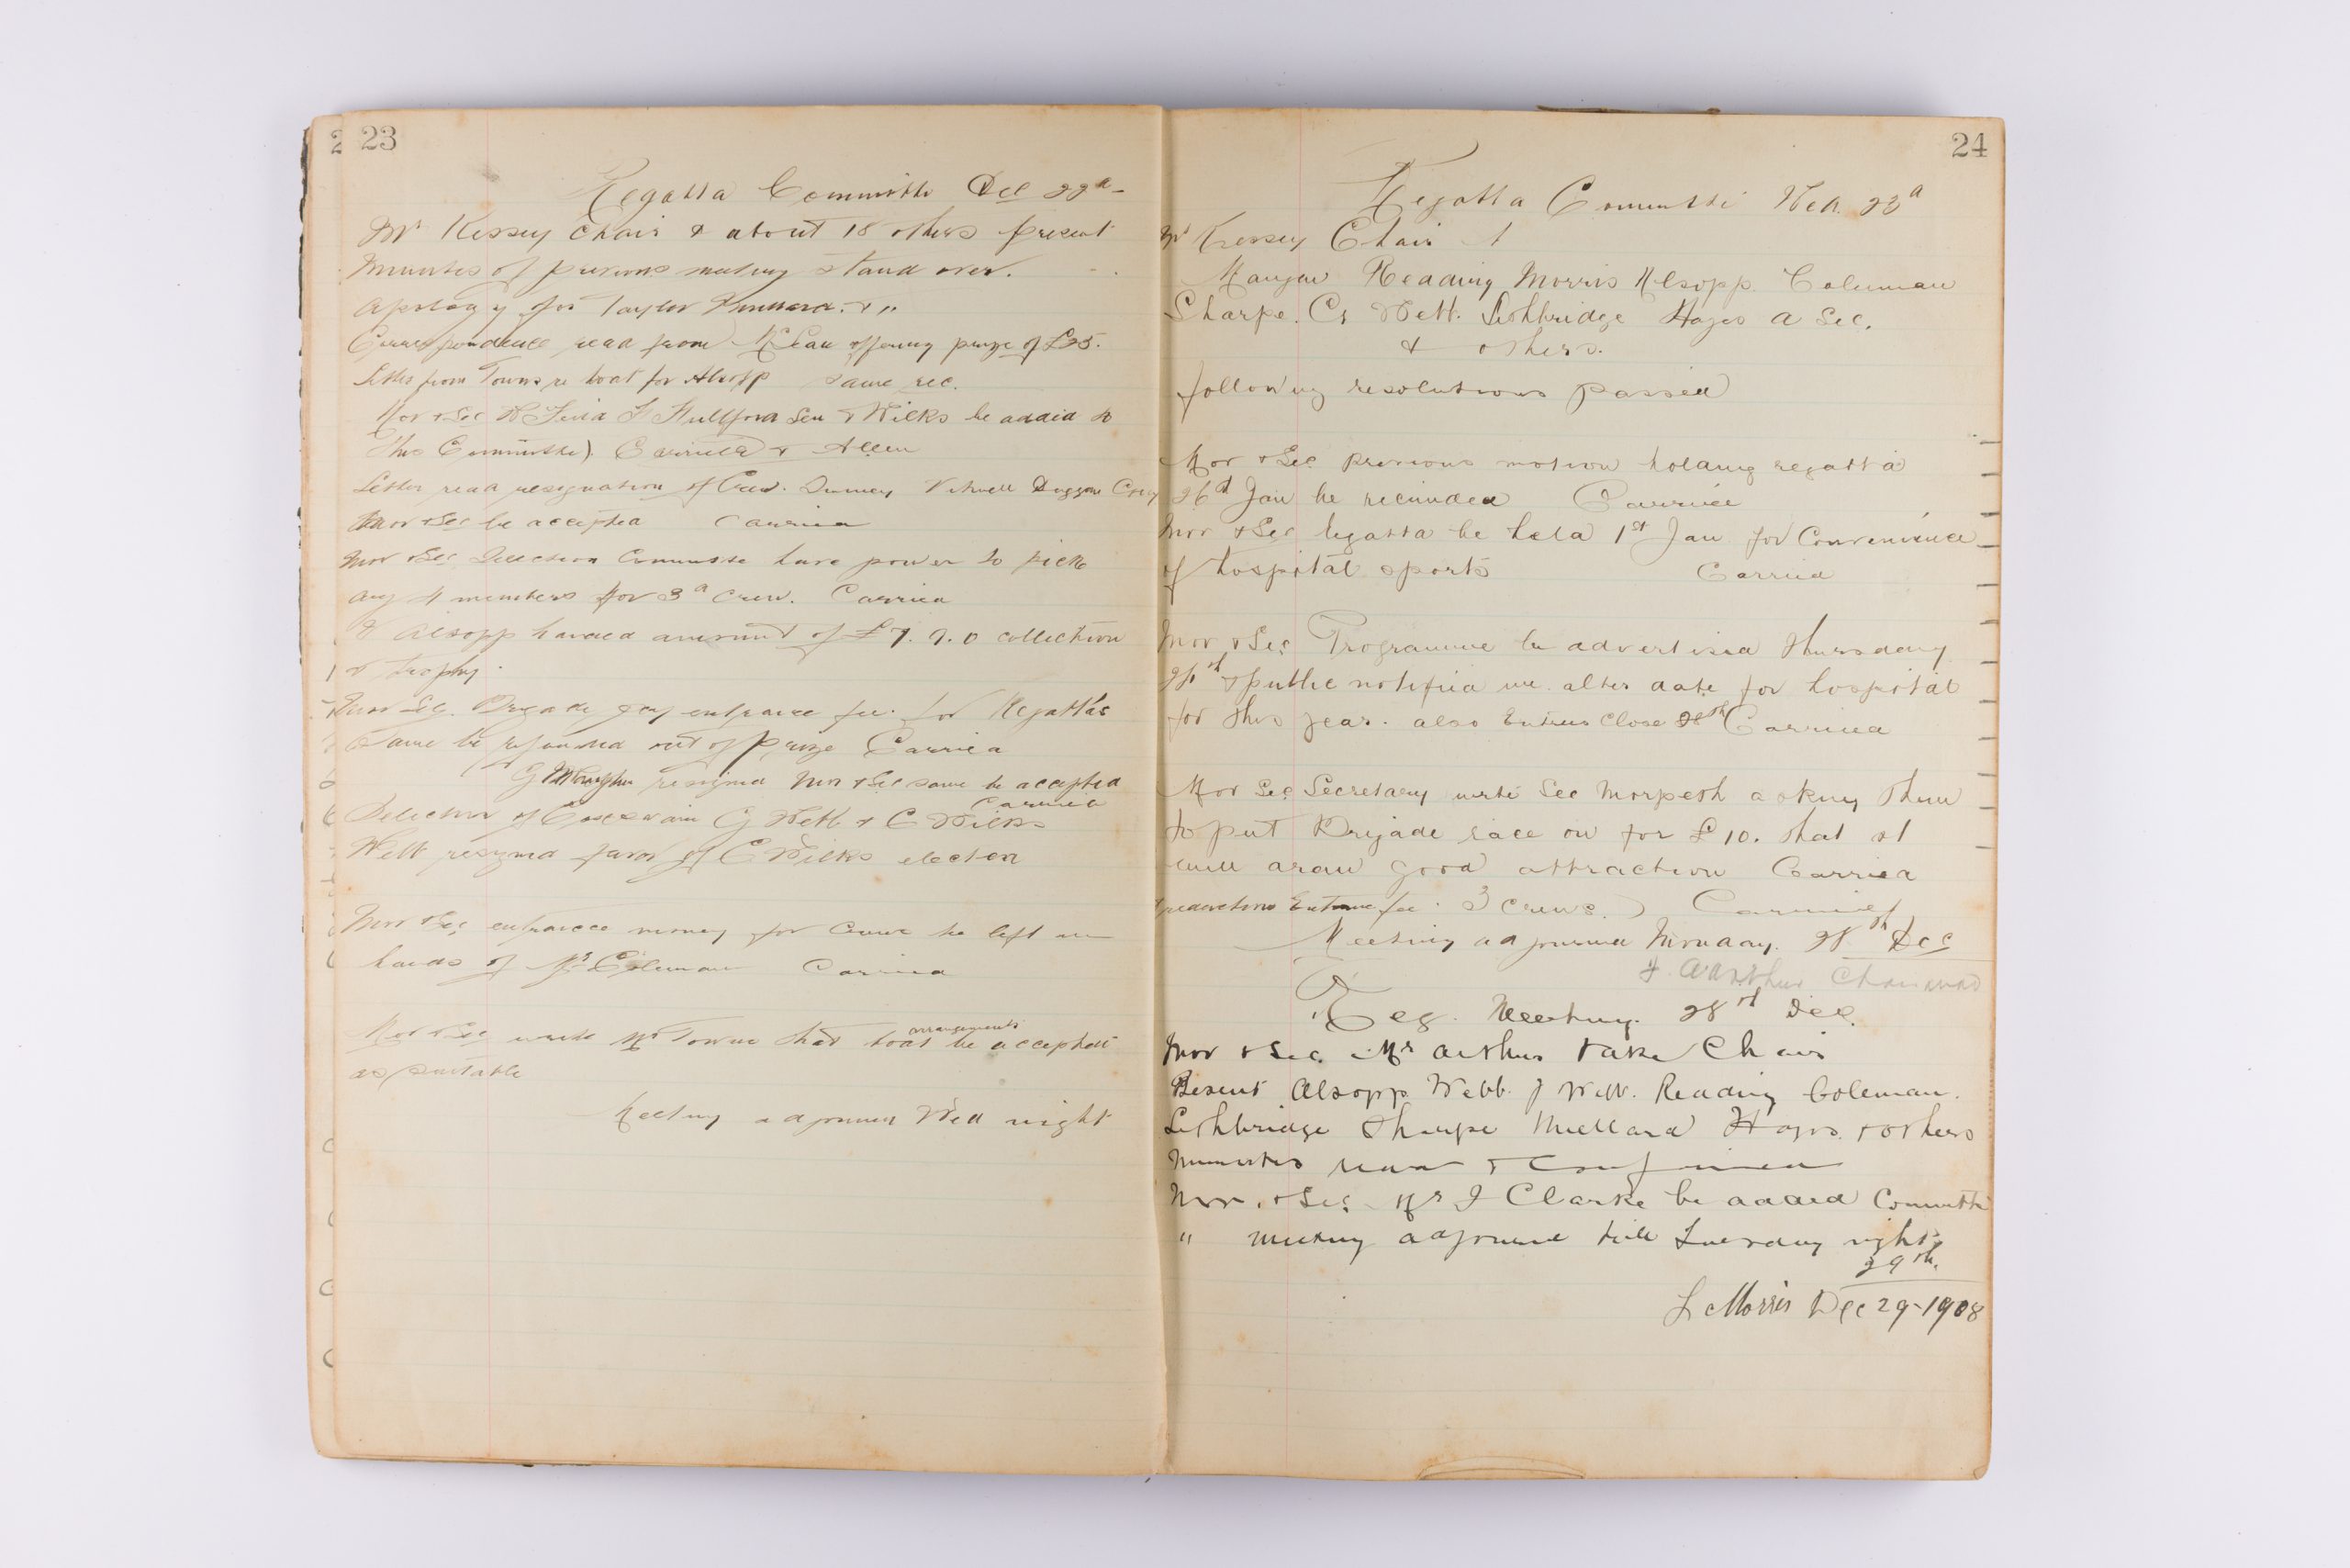 23
Regatta Committe Dec 22d
Mr Kessey Chair & about 18 others present
Minutes of previous meeting stand over.
Apology for Taylor
Correspondence read from McLean offering prize of £25.
Letter from Towns re boat for Alsopp same rec.
Mov & Sec Fulljord Sen & Wilks be added to
this Committee) Carried & Allen
Letter read resignation of Crew. Duggan
Mov & Sec be accepted Carried
Mov & Sec Selection Committe have power to pick
any 4 members for 3d crew. Carried
Alsopp handed amount of £7. 7. 0 collection
& trophy.
Mov Sec. Brigade pay entrance fee for Regattas
Same be refunded out of prize Carried
resigned Mov & Sec same be accepted
Carried
Selection of Coxswain G Webb & C Wilks
Webb resigned favor of C Wilks elected
Mov & Sec entrance money for be left in
hands of Mr Coleman Carried
arrangements
Mov & Sec write Mr Towns that boat be accepted
as suitable
Meeting adjourned Wed night
24
Regatta Committe Wed. 23d
Mr Kessey Chair
Mangan Reading Morris Alsopp. Coleman
Sharpe. C Webb. Lethbridge Hayes a Sec.
& others.
following resolutions passed
Mov & Sec previous motion holding regatta
26d Jan be recinded Carried
Mov & Sec Regatta be held 1st Jan for Convenience
of hospital sports Carried
Mov & Sec Programme be advertised Thursday
24st & public notified we alter date for hospital
for this year. also Entries Close 28th Carried
Mov Sec Secretary write Sec Morpeth asking them
to put Brigade race on for £10. that it
will draw good attraction Carried
Entrance fee. 3 crews. Carried
Meeting adjourned Monday. 28th Dec
Arthur Chairman
Reg. Meeting. 28st Dec.
Mov & Sec. Mr Arthur take Chair
Present Alsopp Webb. J Webb. Reading Coleman.
Lethbridge Sharpe Millard Hayes. & others
Minutes read & Confirmed
Mov. & Sec. Mr J Clarke be added Committe
" meeting adjourned till Tuesday night
29th.
L C Morris Dec 29-1908